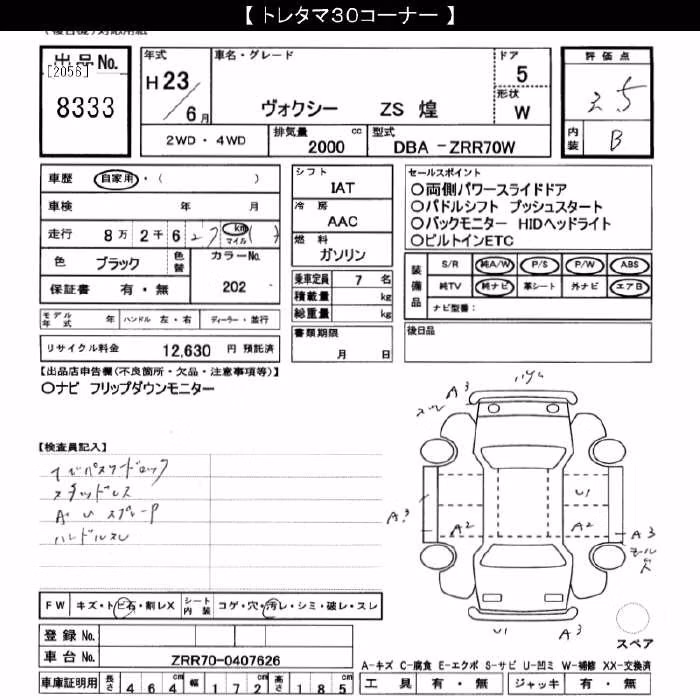 【 トレタマ30コーナー 】
出品No.
[2056]
8333
年式
H23
6月
車名・グレード
ヴォクシー ZS 煌
ドア
5
形状
W
評価点
3.5
内装
B
2WD・4WD
排気量 cc
2000
型式
DBA -ZRR70W
車歴 自家用・( )
車検 年 月
走行 8万 2千 6 2 7 km マイル
色 ブラック 色替
カラーNo.
202
保証書 有・無
シフト
IAT
冷房
AAC
燃料
ガソリン
乗車定員 7 名
積載量 kg
総重量 kg
書類期限
月 日
セールスポイント
〇両側パワースライドドア
〇パドルシフト プッシュスタート
〇バックモニター HIDヘッドライト
〇ビルトインETC
装備品
S/R 純A/W P/S P/W ABS
純TV 純ナビ 革シート 外ナビ エアB
ナビ型番:
後日品
モデル年式 年 ハンドル 左・右 ディーラー・並行
リサイクル料金 12,630 円 預託済
【出品店申告欄(不良箇所・欠品・注意事項等)】
〇ナビ フリップダウンモニター
【検査員記入】
スタッドレス
ハンドルスレ
A3
A3
A2
U1
A2
A3
U1
A3
FW キズ・トビ石・割レX シート内装 コゲ・穴・汚レ・シミ・破レ・スレ
登録No.
車台No. ZRR70-0407626
車庫証明用 長さ 464cm 幅 172cm 高さ 185cm
スペア
A-キズ C-腐食 E-エクボ S-サビ U-凹ミ W-補修 XX-交換済
工具 有・無 ジャッキ 有・無